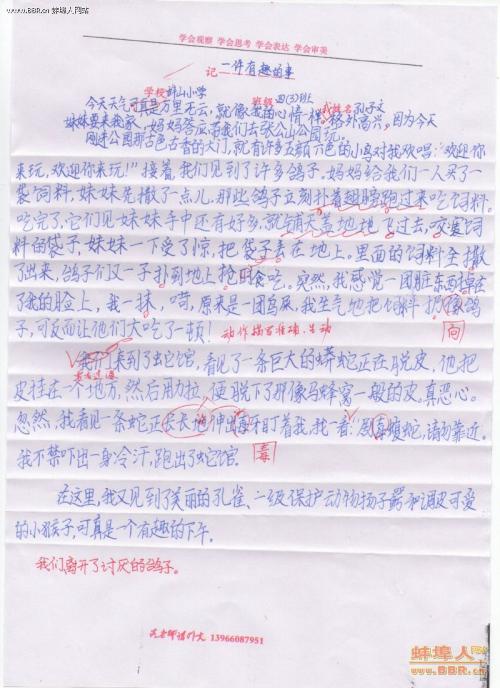 www.BBR.cn 蚌埠人网站
学会观察 学会思考 学会表达 学会审美
记一件有趣的事
学校 蚌山小学 班级 四(3)班 姓名 孙子文
今天天气可真是万里无云，就像我的心情一样，格外高兴，因为今天
妹妹要来我家，妈妈答应带我们去张公山公园玩。
刚进公园那古色古香的大门，就有许多五颜六色的小鸟对我欢唱："欢迎你
来玩，欢迎你来玩！"接着，我们见到了许多鸽子，妈妈给我们一人买了一
袋饲料，妹妹先撒了一点儿，那些鸽子立刻扑着翅膀跑过来吃饲料。
吃完了，它们见妹妹手中还有好多，就铺天盖地地飞过去，咬装饲
料的袋子，妹妹一下受了惊，把袋子丢在地上。里面的饲料全撒
了出来，鸽子们又一子扑到地上抢时食吃。突然，我感觉一团脏东西掉在
了我的脸上，我一抹，嗬，原来是一团鸟屎，我生气地把饲料扔像鸽
子，可反而让他们大吃了一顿！ 动作描写准确、生动
向
我们来到了蛇馆，看见了一条巨大的蟒蛇正在脱皮，他把
皮挂在一个地方，然后用力拉，便脱下了那像马蜂窝一般的皮，真恶心。
忽然，我看见一条蛇正长大嘴伸出毒牙盯着我，我一看：腹蛇，请勿靠近。
我不禁吓出一身冷汗，跑出了蛇馆。
毒
在这里，我又见到了美丽的孔雀、一级保护动物扬子鳄和调皮可爱
的小猴子，可真是一个有趣的下午。
我们离开了讨厌的鸽子。
13966087951
蚌埠人网
www.BBR.cn